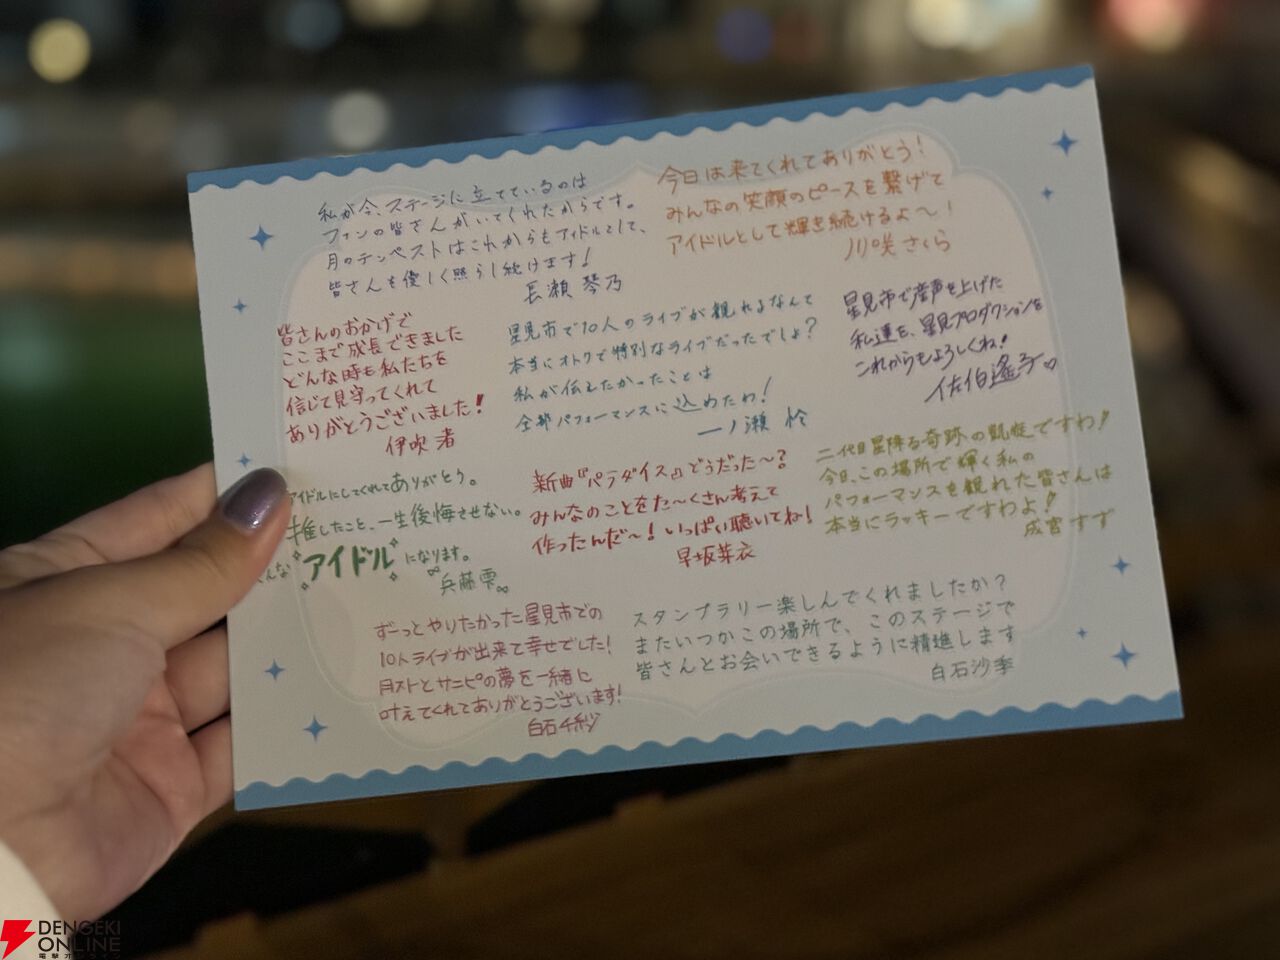 私が今、ステージに立てているのは
ファンの皆さんがいてくれたからです。
月のテンペストはこれからもアイドルとして、
皆さんを優しく照らし続けます！
長瀬 琴乃
今日は来てくれてありがとう！
みんなの笑顔のピースを繋げて
アイドルとして輝き続けるよ〜！
川咲さくら
皆さんのおかげで
ここまで成長できました
どんな時も私たちを
信じて見守ってくれて
ありがとうございました！
伊吹 渚
星見市で10人のライブが観れるなんて
本当にオトクで特別なライブだったでしょ？
私が伝えたかったことは
全部パフォーマンスに込めたわ！
一ノ瀬 怜
星見市で産声を上げた
私達を、星見プロダクションを
これからもよろしくね！
佐伯遙子
アイドルにしてくれてありがとう。
推したこと、一生後悔させない。
そんなアイドルになります。
兵藤雫
新曲『パラダイス』どうだった〜？
みんなのことをた〜くさん考えて
作ったんだ〜！いっぱい聴いてね！
早坂芽衣
二代目星降る奇跡の凱旋ですわ！
今日、この場所で輝く私の
パフォーマンスを観れた皆さんは
本当にラッキーですわよ！
成宮すず
ずーっとやりたかった星見市での
10人ライブが出来て幸せでした！
月ストとサニピの夢を一緒に
叶えてくれてありがとうございます！
白石千紗
スタンプラリー楽しんでくれましたか？
またいつかこの場所で、このステージで
皆さんとお会いできるように精進します
白石沙季
DENGEKI
ONLINE
電撃オンライン